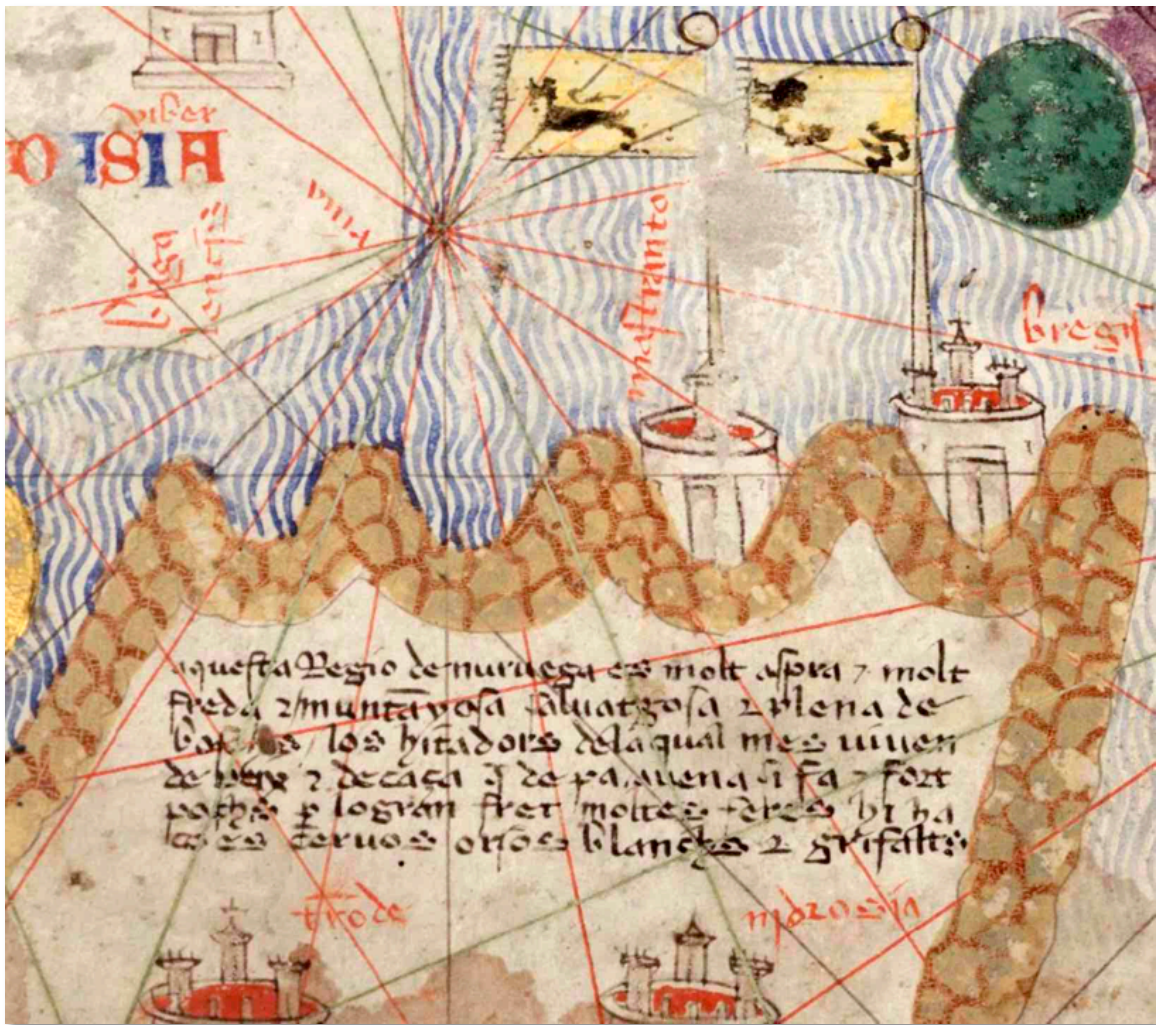 viber
ASIA
mastranto
bregis
aquesta Regio de nuruega es molt aspra ⁊ molt
freda ⁊ muntāyosa saluatgosa ⁊ plena de
los hītadors dela qual mes uiuen
de peix ⁊ de caça q̄ de pa auena si fa ⁊ fort
pocha p lo gran fret moltes feres hi ha
ço es ceruos orsos blanchs ⁊ grifalts
trōde